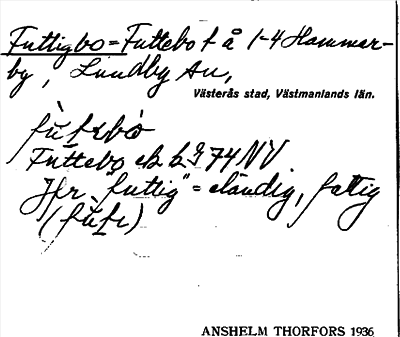 Futtigbo = Futtebo t å 1-4 Hammar-
by, Lundby sn,
Västerås stad, Västmanlands län.
Futtebo ek. bl. 74 NV
Jfr "futtig" = eländig, fattig
ANSHELM THORFORS 1936